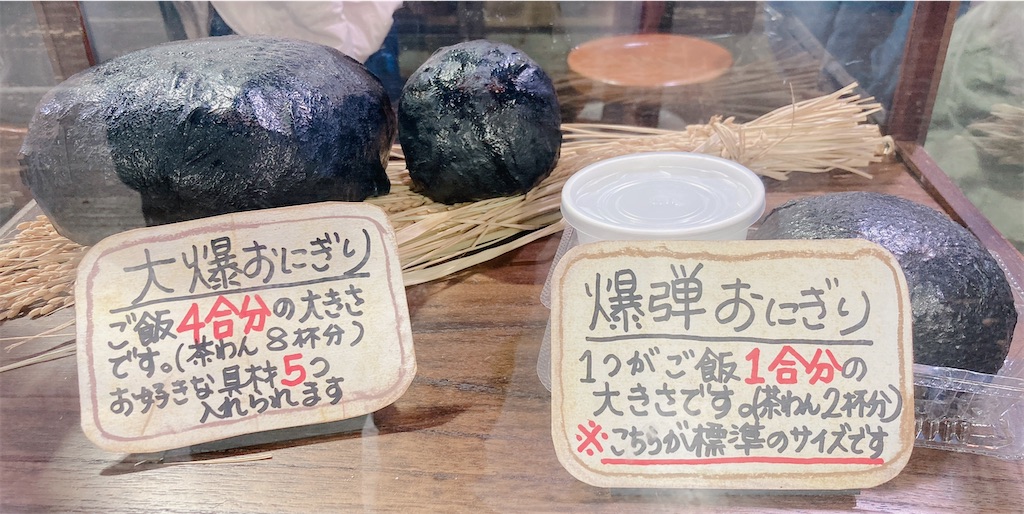 大爆おにぎり
ご飯4合分の大きさ
です。(茶わん8杯分)
お好きな具材5つ
入れられます
爆弾おにぎり
1つがご飯1合分の
大きさです。(茶わん2杯分)
※こちらが標準のサイズです